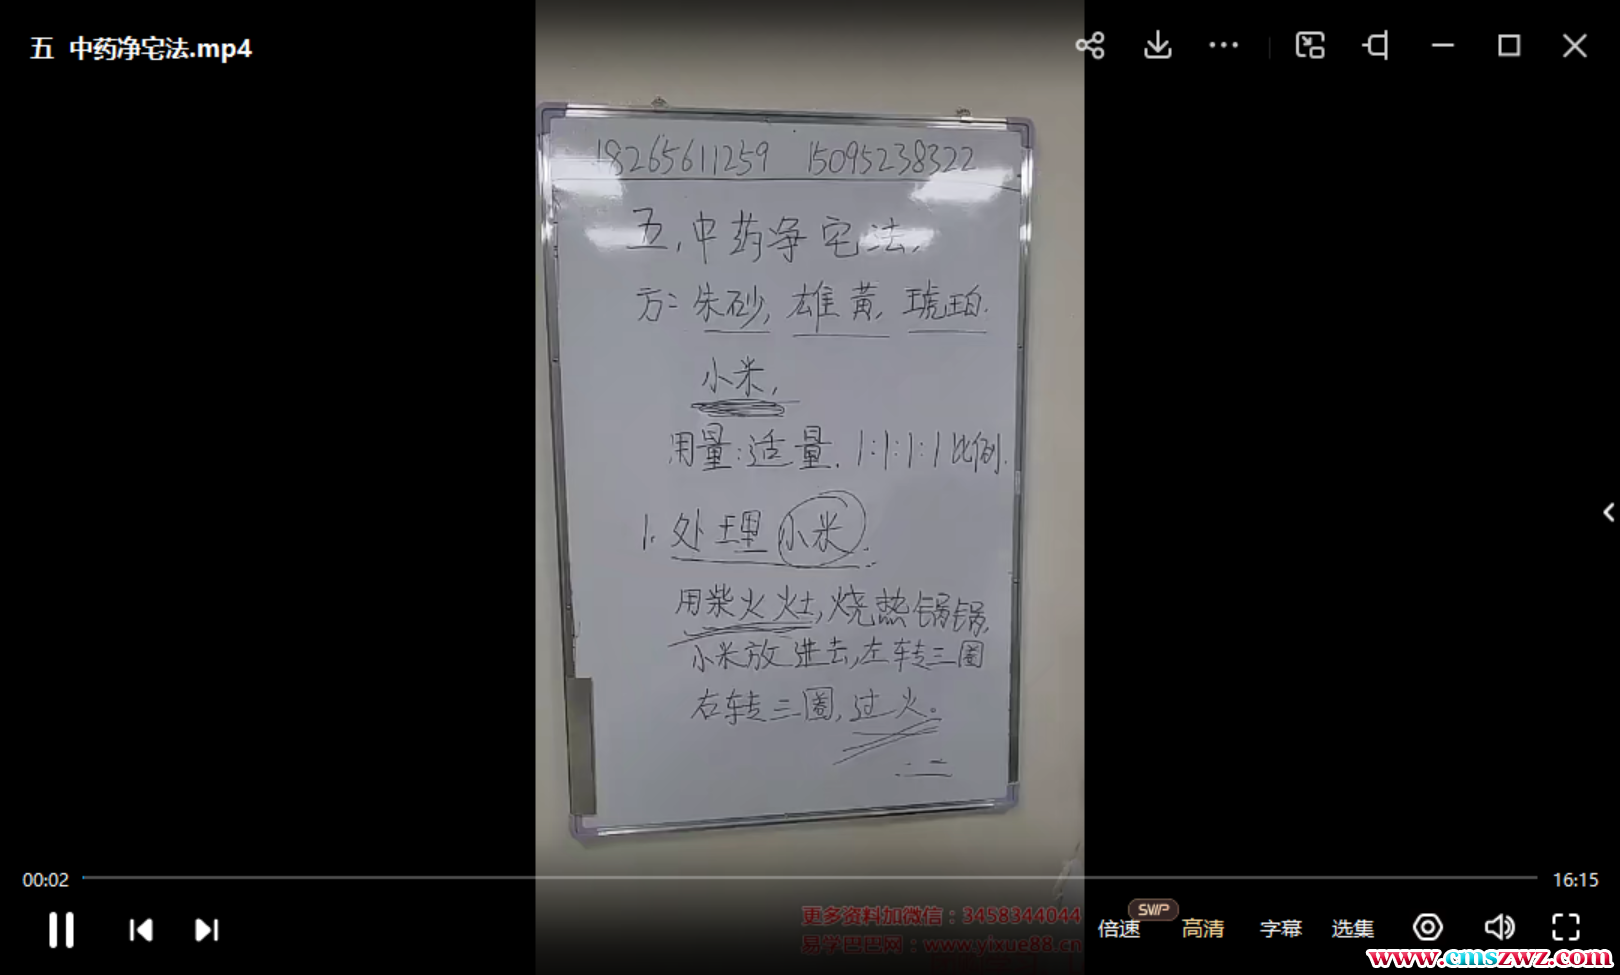 五 中药净宅法.mp4
18265611259 15095238322
五、中药净宅法,
方:朱砂,雄黄,琥珀.
小米,
用量:适量.1:1:1:1比例.
1.处理小米.
用柴火灶,烧热锅锅,
小米放进去,左转三圈
右转三圈,过火。
更多资料加微信:3458344044
易学巴巴网:www.yixue88.cn
00:02
16:15
倍速
SVIP
高清
字幕
选集
www.cmszwz.com